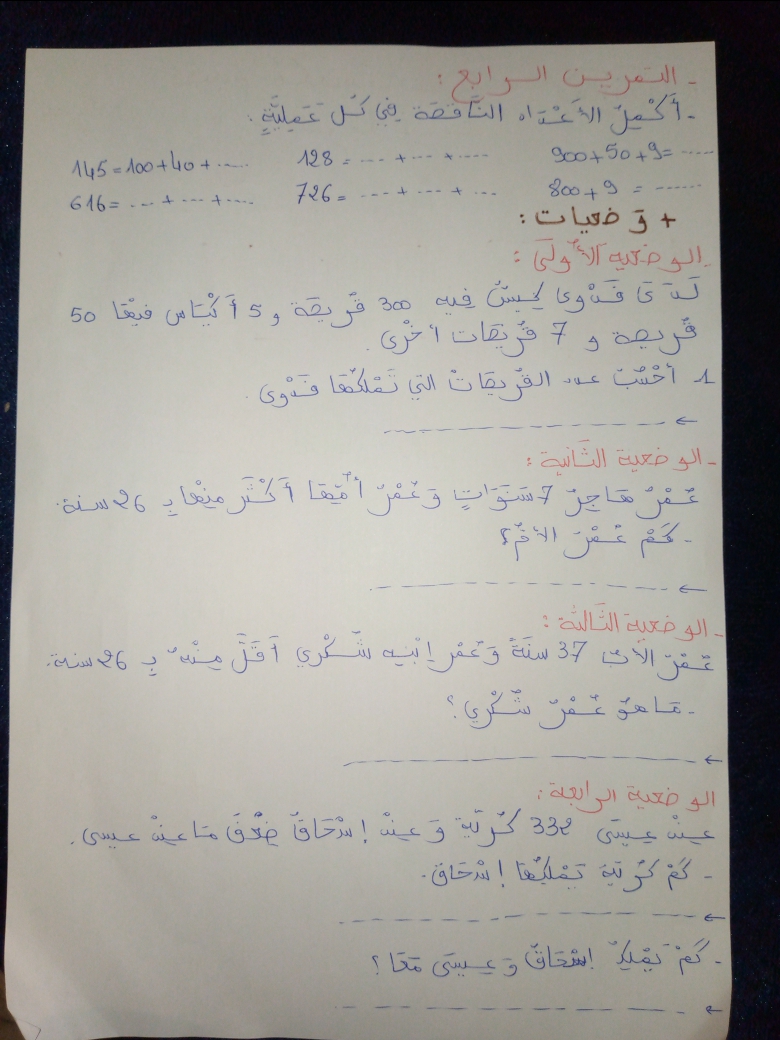 - التمرين الرابع :
- أَكْمِلُ الأَعْدَاد النَّاقصَة فِي كُل عَمَلِيَّةٍ :
900+50+9= ...... 128 = .... + .... + ..... 145=100+40+ .....
800+9 = ....... 726= .... + .... + .... 616= .... + .... + .....
+ وَضعيات :
- الوضعية الأُولَى :
لَدَى فَدْوى كِيسٌ فيه 300 قُريصَة و 5 أَكْيَاس فيهَا 50
قُريصة و 7 قُريصَات أخْرى .
1 أَحْسُبُ عدد القُريصَاتْ التي تَمْلكُهَا فَدْوى .
← - - - - - - - - - - - -
- الوضعية الثَّانية :
عُمْرُ هَاجرُ 7 سَنَوَاتٍ وَعُمْرُ أُمِّهَا أَكْثَر مِنْهَا بِـ 26 سنة .
- كَمْ عُمْرُ الأمُّ ؟
← - - - - - - - - - - - -
- الوضعية الثَّالثة :
عُمْرُ الأبُ 37 سَنَةً وَعُمْر اِبْنِهِ شُكْري أَقَلَّ مِنْهُ بِـ 26 سنة .
- مَا هوَ عُمْرُ شُكْري ؟
← - - - - - - - - - - - -
الوضعية الرابعة :
عِنْدَ عِيسَى 332 كُرَيَّة وَ عِنْدَ إسْحَاقَ ضِعْفَ مَا عِنْدَ عيسى .
- كَمْ كُرَيَّة يَمْلكُهَا إسْحَاق .
← - - - - - - - - - - - -
- كَمْ يَمْلِكُ إسْحَاقُ وَ عِيسَى مَعًا ؟
← - - - - - - - - - - - -